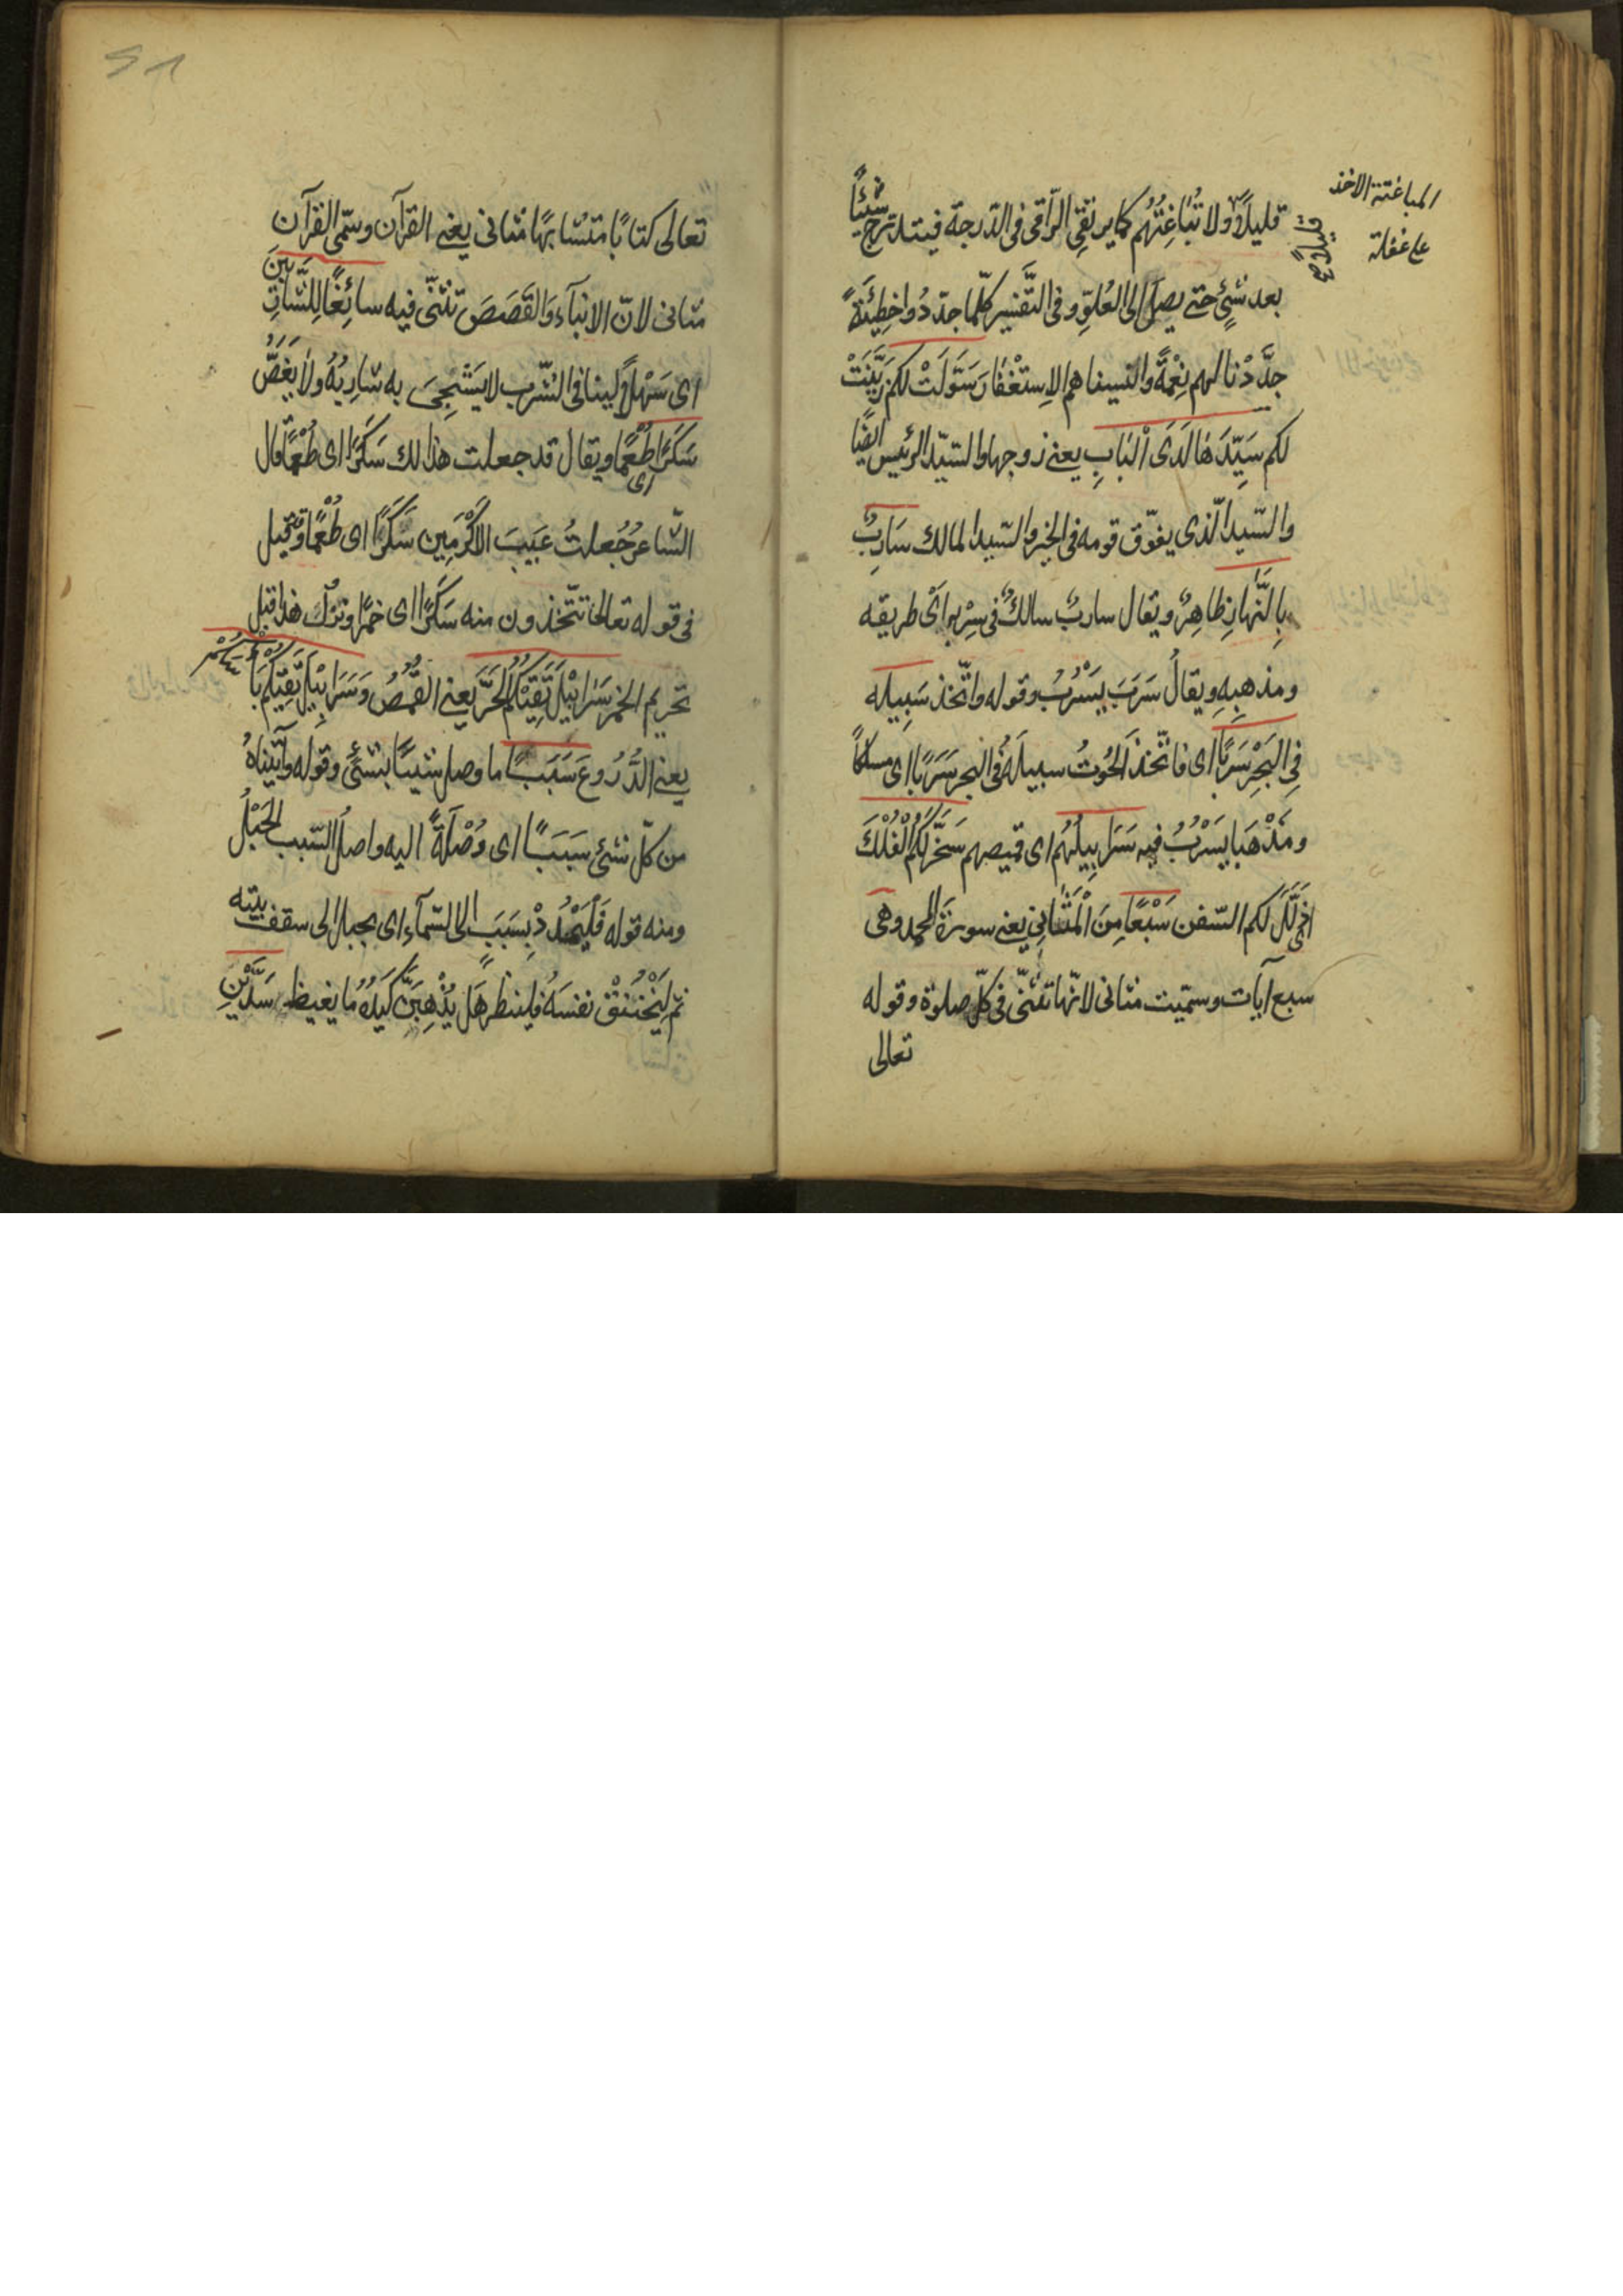 المباغتة الاخذ
على غفلة
قليلا ع
قليلاً ولا تُبَاغِتُهُم كما يرتقِي الرّاقى فى الدّرجة فيتدرّج شيئاً
بعد شئٍ حتى يصل الى العُلوِّ وفى التّفسير كلّما جدّدُوا خطِيئَةً
جدَّدْنا لهم نِعْمَةً وانسيناهم الاِستغْفَارَ سَوَّلَتْ لكم زَيَّنَتْ
لكم سَيِّدَهَا لَدَى الْبَابِ يعنى زوجها والسّيّد الرئيس ايضًا
والسّيد الّذى يفوّق قومه فى الخير والسّيد المالك سَارِبٌ
بِالنَّهارِ ظاهِرٌ ويقال ساربٌ سالكٌ فى سِرْبِه اَىْ طريقه
ومذهبِهِ ويقالُ سَرَبَ يَسْرُبُ وقوله واتّخذ سَبِيله
فِى البَحْرِ سَرَبًا اى فاتّخذ الحُوتُ سبيلَهُ فى البحر سَرَبًا اى مسلكاً
ومَذْهَبًا يَسْرُبُ فيه سَرَابِيلُهُم اى قميصهم سَخَّرَ لَكُمُ الْفُلْكَ
اى ذَلَّلَ لكم السّفن سَبْعًا مِنَ الْمَثَانِى يعنى سورة الحمد وهى
سبع آيات وسمّيت مثانى لانّها تثنّى فى كلّ صلوة وقوله
تعالى
تعالى كتابًا متشابهًا مثانى يعنى القرآن وسمّى القرآن
مثانى لانّ الانبآء وَالقَصَصَ تثنّى فيه سائِغًا لِلشّارِبِينَ
اى سَهْلاً ليّنا فى الشّرب لا يَشْجَى به شارِبُهُ ولا يَغَصُّ
سَكَرًا اى طُعْمًا ويقال قد جعلت هذا لك سَكَرًا اى طُعْمًا قال
الشّاعر جُعلتُ عَيبَ الاَكْرَمِينَ سَكَرًا اى طُعْمًا وقيل
فى قوله تعالى تتّخذون منه سَكَرًا اى خمرًا ونزلت هذا قبل
تحريم الخمر سَرَابِيْلَ تَقِيْكُمُ الْحَرَّ يعنى القُمُصُ وَسَرَابِيْلَ تَقِيْكُم بَأْسَكُمْ
يعنى الدُّرُوعَ سَبَبًا ما وصل شيئًا بشئ وقوله وآتيناهُ
من كلّ شئ سَبَبًا اى وُصْلَةً اليه واصلُ السّبب الْحَبْلُ
ومنه قوله فَلْيَمْدُدْ بِسَبَبٍ الى السّمآء اى بحبل الى سقف بيته
ثم لْيَخْتَنقْ نفسَهُ فلينظر هَل يُذْهِبَنَّ كَيْدُهُ ما يغيظ سَدَّيْنِ